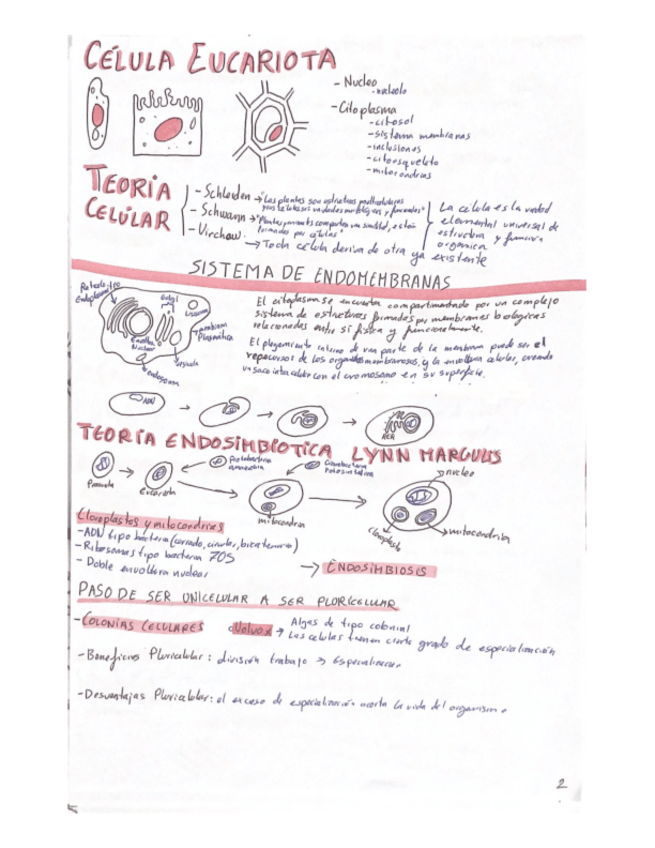 CÉLULA EUCARIOTA
- Nucleo
- nucleolo
- Citoplasma
- citosol
- sistema membranas
- inclusiones
- citoesqueleto
- mitocondrias
TEORÍA CELULAR
- Schleiden → "Las plantas son
- Schwann →
formados por células"
- Virchow.
→ Toda célula deriva de otra ya existente
La célula es la unidad
elemental universal de
estructura y función
orgánica
SISTEMA DE ENDOMEMBRANAS
Golgi
membrana
Plasmática
endosoma
El citoplasma se encuentra compartimentado por un complejo
sistema de estructuras formadas por membranas biologicas
relacionadas entre si física y funcionalmente.
El plegamiento interno de una parte de la membrana puede ser el
de los y la envoltura celular, creando
un saco intracelular con el cromosoma en su superficie.
ADN
RER
TEORÍA ENDOSIMBIOTICA LYNN MARGULIS
Eucariota
mitocondria
nucleo
cloroplasto
mitocondria
Cloroplastos y mitocondrias
- ADN tipo bacteria (cerrado, circular, bicatenario)
- Ribosomas tipo bacteria 70S
- Doble envoltura nuclear
→ ENDOSIMBIOSIS
PASO DE SER UNICELULAR A SER PLURICELULAR
- COLONIAS CELULARES
Volvox → Algas de tipo colonial
Las celulas tienen cierto grado de especialización
- Beneficios Pluricelular: división trabajo → Especialización
- Desventajas Pluricelular: el exceso de especialización acorta la vida del organismo
2